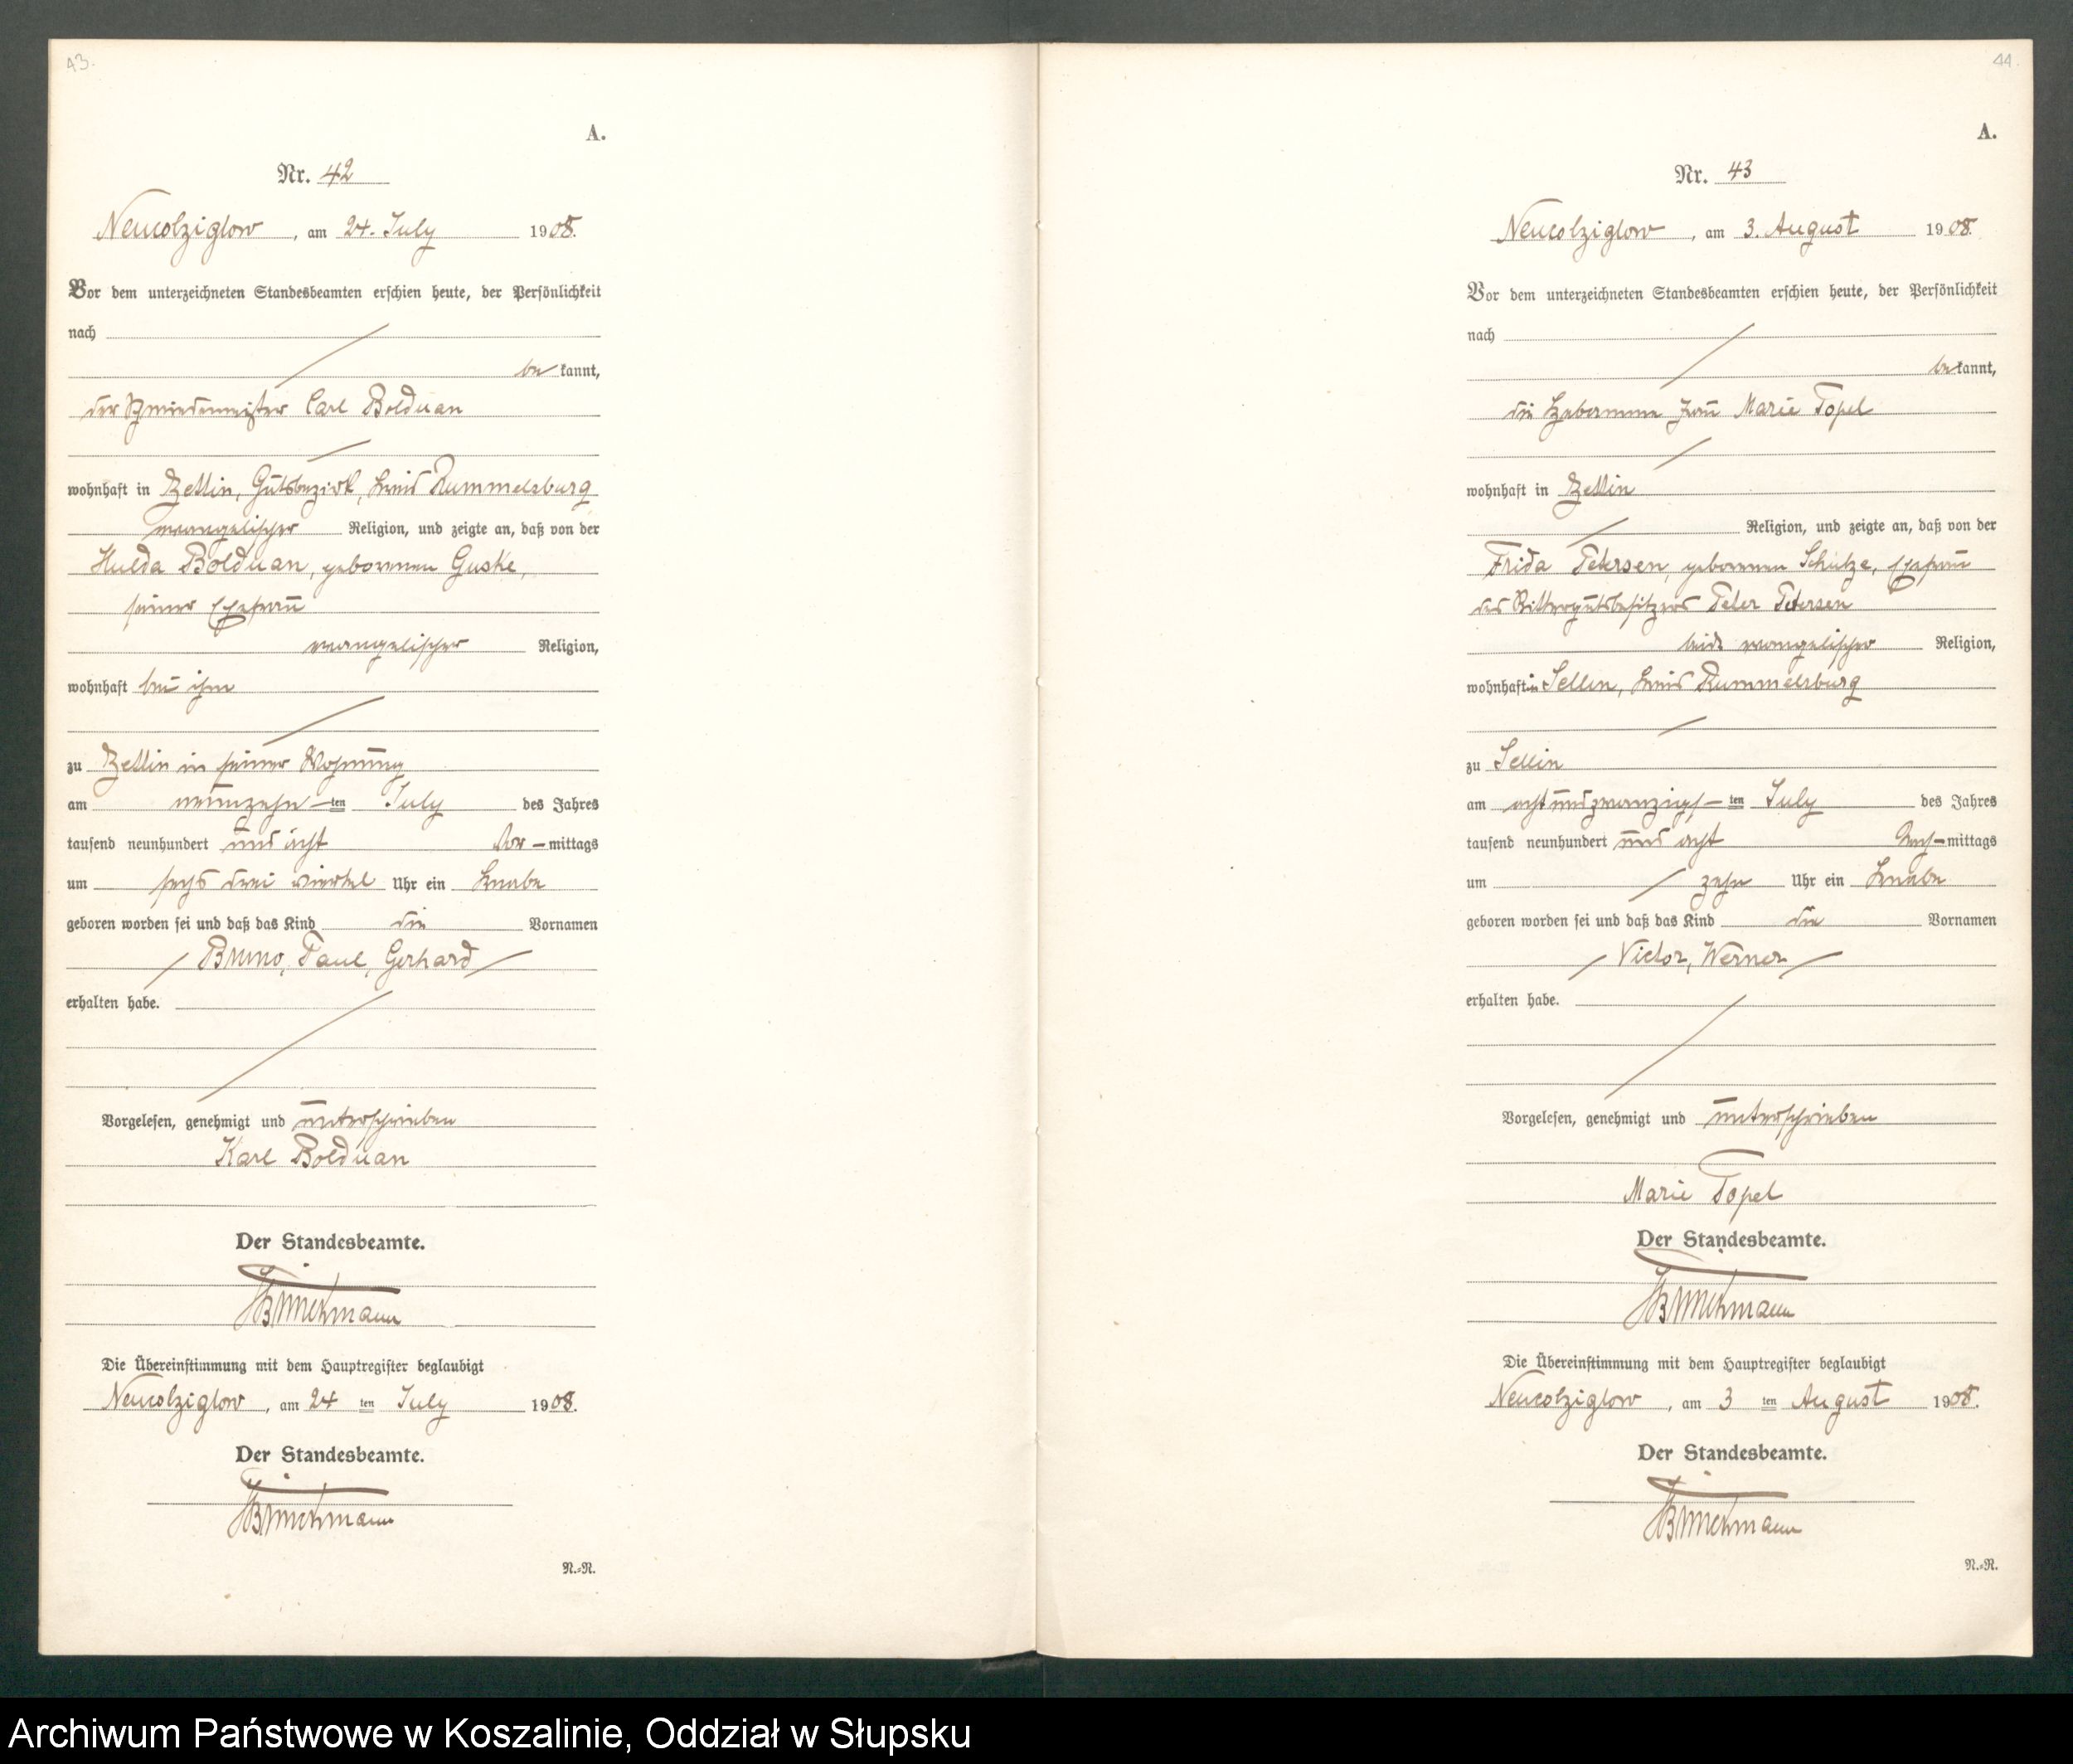 43.
A.
Nr. 42
Neucolziglow, am 24. July 1908.
Vor dem unterzeichneten Standesbeamten erschien heute, der Persönlichkeit
nach
bekannt,
der Schmiedemeister Carl Bolduan
wohnhaft in Zettin, Gutsbezirk, Kreis Rummelsburg
evangelischer Religion, und zeigte an, daß von der
Hulda Bolduan, geborenen Guske,
seiner Ehefrau
evangelischer Religion,
wohnhaft bei ihm
zu Zettin in seiner Wohnung
am neunzehn-ten July des Jahres
tausend neunhundert und acht Vor-mittags
um sechs drei viertel Uhr ein Knabe
geboren worden sei und daß das Kind die Vornamen
Bruno, Paul, Gerhard
erhalten habe.
Vorgelesen, genehmigt und unterschrieben
Karl Bolduan
Der Standesbeamte.
Brinckmann
Die Übereinstimmung mit dem Hauptregister beglaubigt
Neucolziglow, am 24 ten July 1908.
Der Standesbeamte.
Brinckmann
N.=N.
44.
A.
Nr. 43
Neucolziglow, am 3. August 1908.
Vor dem unterzeichneten Standesbeamten erschien heute, der Persönlichkeit
nach
bekannt,
die Hebamme Frau Marie Topel
wohnhaft in Zettin
Religion, und zeigte an, daß von der
Frida Petersen, geborenen Schütze, Ehefrau
des Rittergutsbesitzers Peter Petersen
beide evangelischer Religion,
wohnhaft in Sellin, Kreis Rummelsburg
zu Sellin
am achtundzwanzigs-ten July des Jahres
tausend neunhundert und acht Nach-mittags
um zehn Uhr ein Knabe
geboren worden sei und daß das Kind die Vornamen
Victor, Werner
erhalten habe.
Vorgelesen, genehmigt und unterschrieben
Marie Topel
Der Standesbeamte.
Brinckmann
Die Übereinstimmung mit dem Hauptregister beglaubigt
Neucolziglow, am 3 ten August 1908.
Der Standesbeamte.
Brinckmann
N.=N.
Archiwum Państwowe w Koszalinie, Oddział w Słupsku